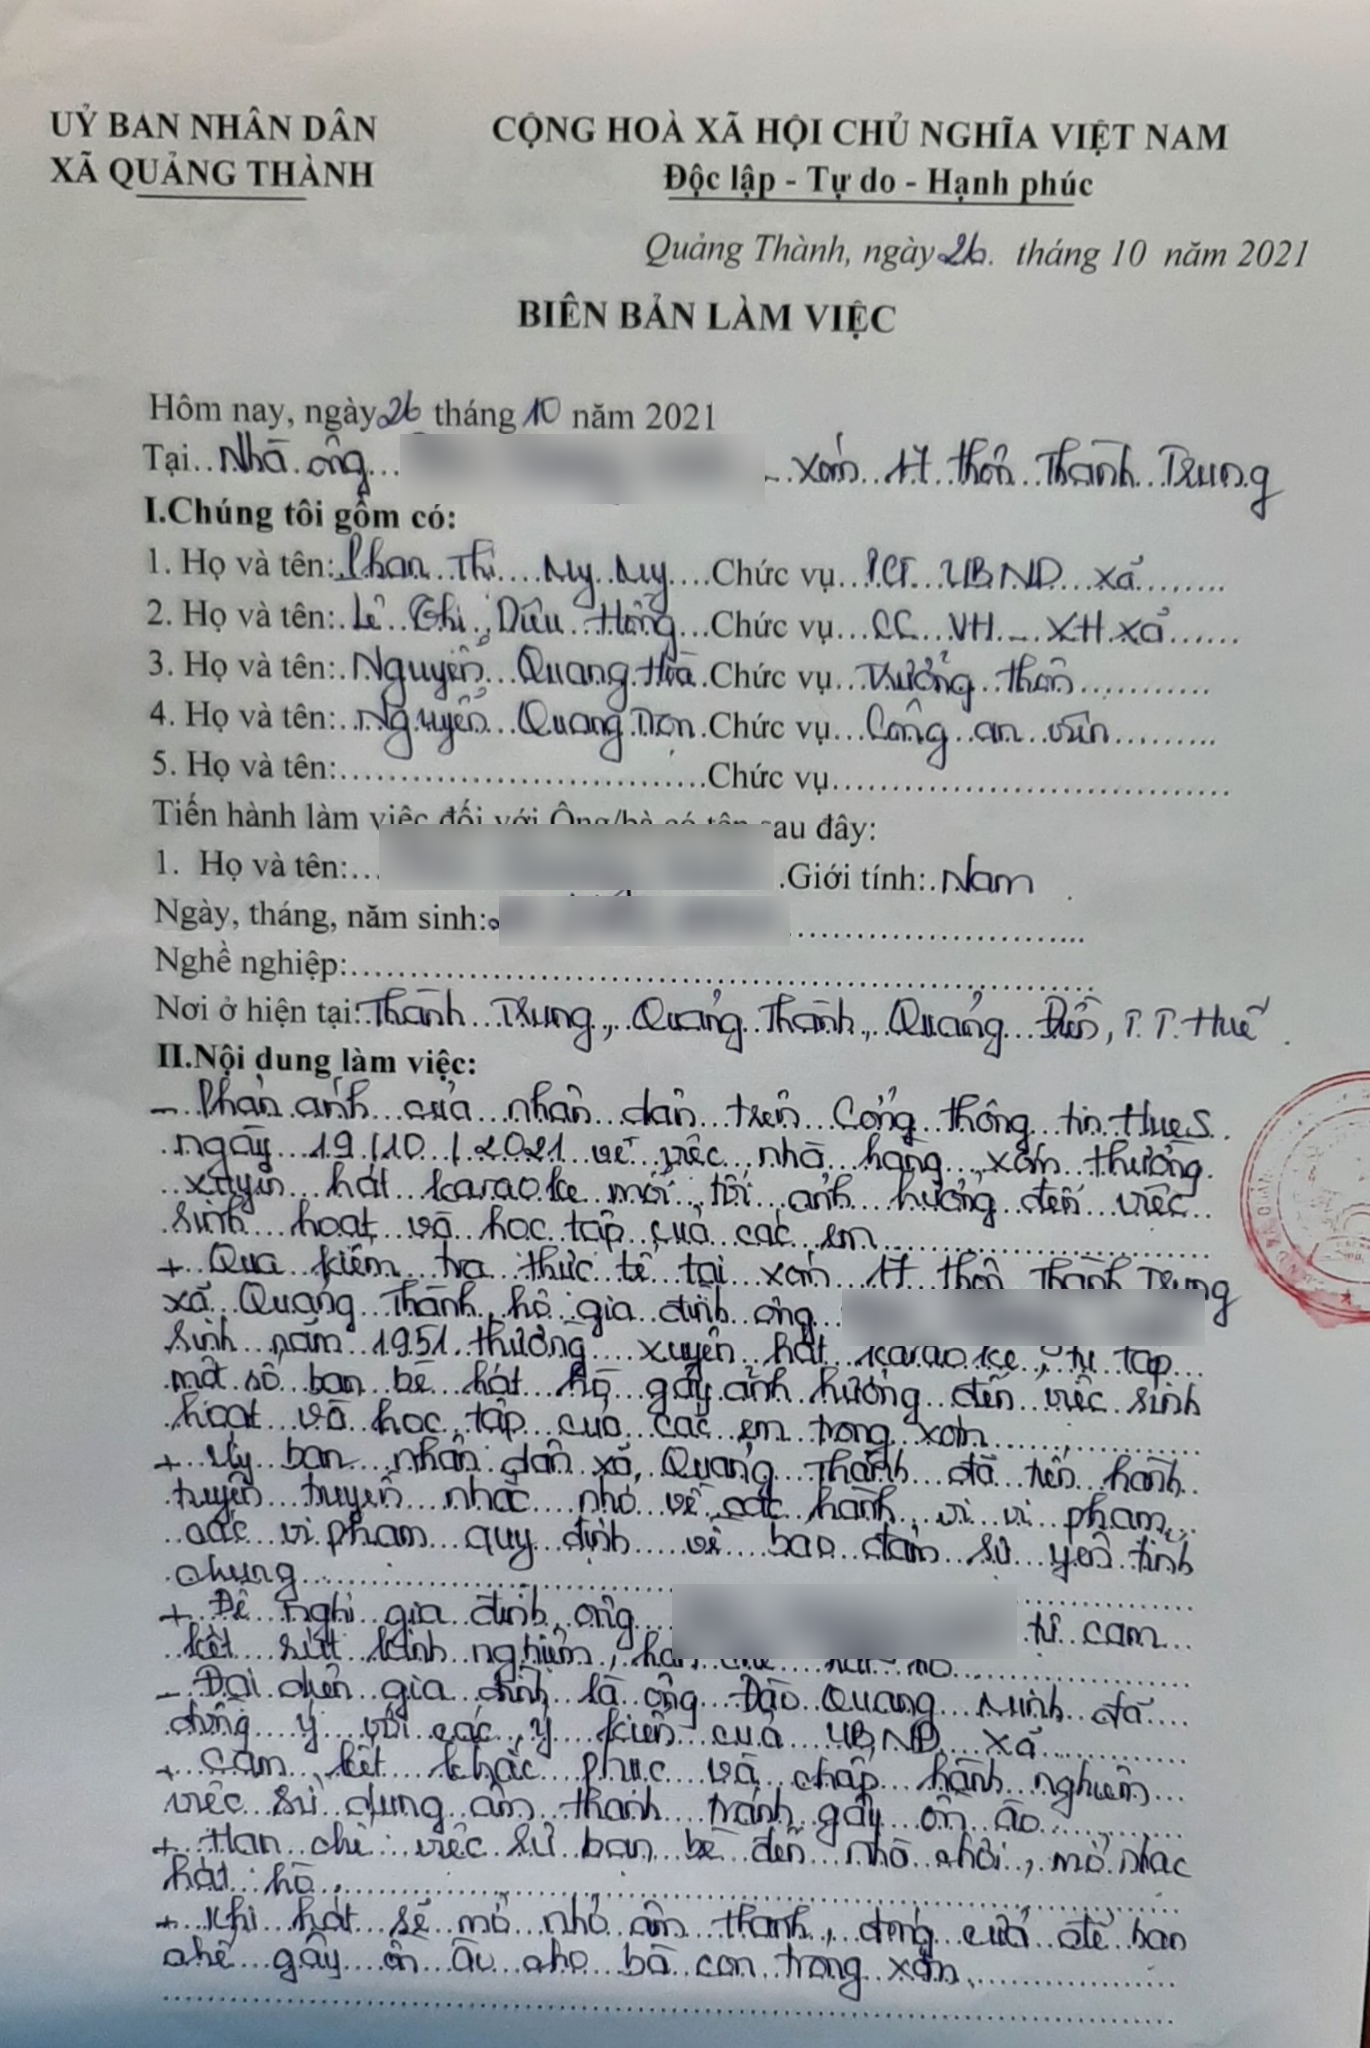 UỶ BAN NHÂN DÂN
XÃ QUẢNG THÀNH
CỘNG HOÀ XÃ HỘI CHỦ NGHĨA VIỆT NAM
Độc lập - Tự do - Hạnh phúc
Quảng Thành, ngày 26. tháng 10 năm 2021
BIÊN BẢN LÀM VIỆC
Hôm nay, ngày 26 tháng 10 năm 2021
Tại.. Nhà ông... xóm 17 thôn Thành Trung
I.Chúng tôi gồm có:
1. Họ và tên: Phan Thị My My....Chức vụ...PCT UBND xã........
2. Họ và tên: Lê Thị Diệu Hồng...Chức vụ...CC VH - XH xã......
3. Họ và tên: Nguyễn Quang Hoà.Chức vụ...Trưởng thôn...........
4. Họ và tên: Nguyễn Quang Chức vụ...Công an viên.........
5. Họ và tên:.................................Chức vụ....................................
Tiến hành làm việc đối với Ông/bà có tên sau đây:
1. Họ và tên:... .Giới tính: Nam
Ngày, tháng, năm sinh:
Nghề nghiệp:..................................................................
Nơi ở hiện tại: Thành Trung, Quảng Thành, Quảng Điền, T.T.Huế.
II.Nội dung làm việc:
- Phản ánh của nhân dân trên Cổng thông tin HueS
ngày 19/10/2021 về việc nhà hàng xóm thường
xuyên hát karaoke mỗi tối ảnh hưởng đến việc
sinh hoạt và học tập của các em
+ Qua kiểm tra thực tế tại xóm 17 thôn Thành Trung
xã Quảng Thành, hộ gia đình ông
sinh năm 1951 thường xuyên hát karaoke, tụ tập
một số bạn bè hát hò gây ảnh hưởng đến việc sinh
hoạt và học tập của các em trong xóm
+ Uỷ ban nhân dân xã Quảng Thành đã tiến hành
tuyên truyền nhắc nhở về các hành vi vi phạm
các vi phạm quy định về bảo đảm sự yên tĩnh
chung
+ Đề nghị gia đình ông tự cam
kết rút kinh nghiệm, hạn chế hát hò
- Đại diện gia đình là ông Đào Quang Minh đã
đồng ý với các ý kiến của UBND xã
+ Cam kết khắc phục và chấp hành nghiêm
việc sử dụng âm thanh tránh gây ồn ào
+ Hạn chế việc bạn bè đến nhà chơi, mở nhạc
hát hò.
+ Khi hát sẽ mở nhỏ âm thanh, đóng cửa để hạn
chế gây ồn ào cho bà con trong xóm